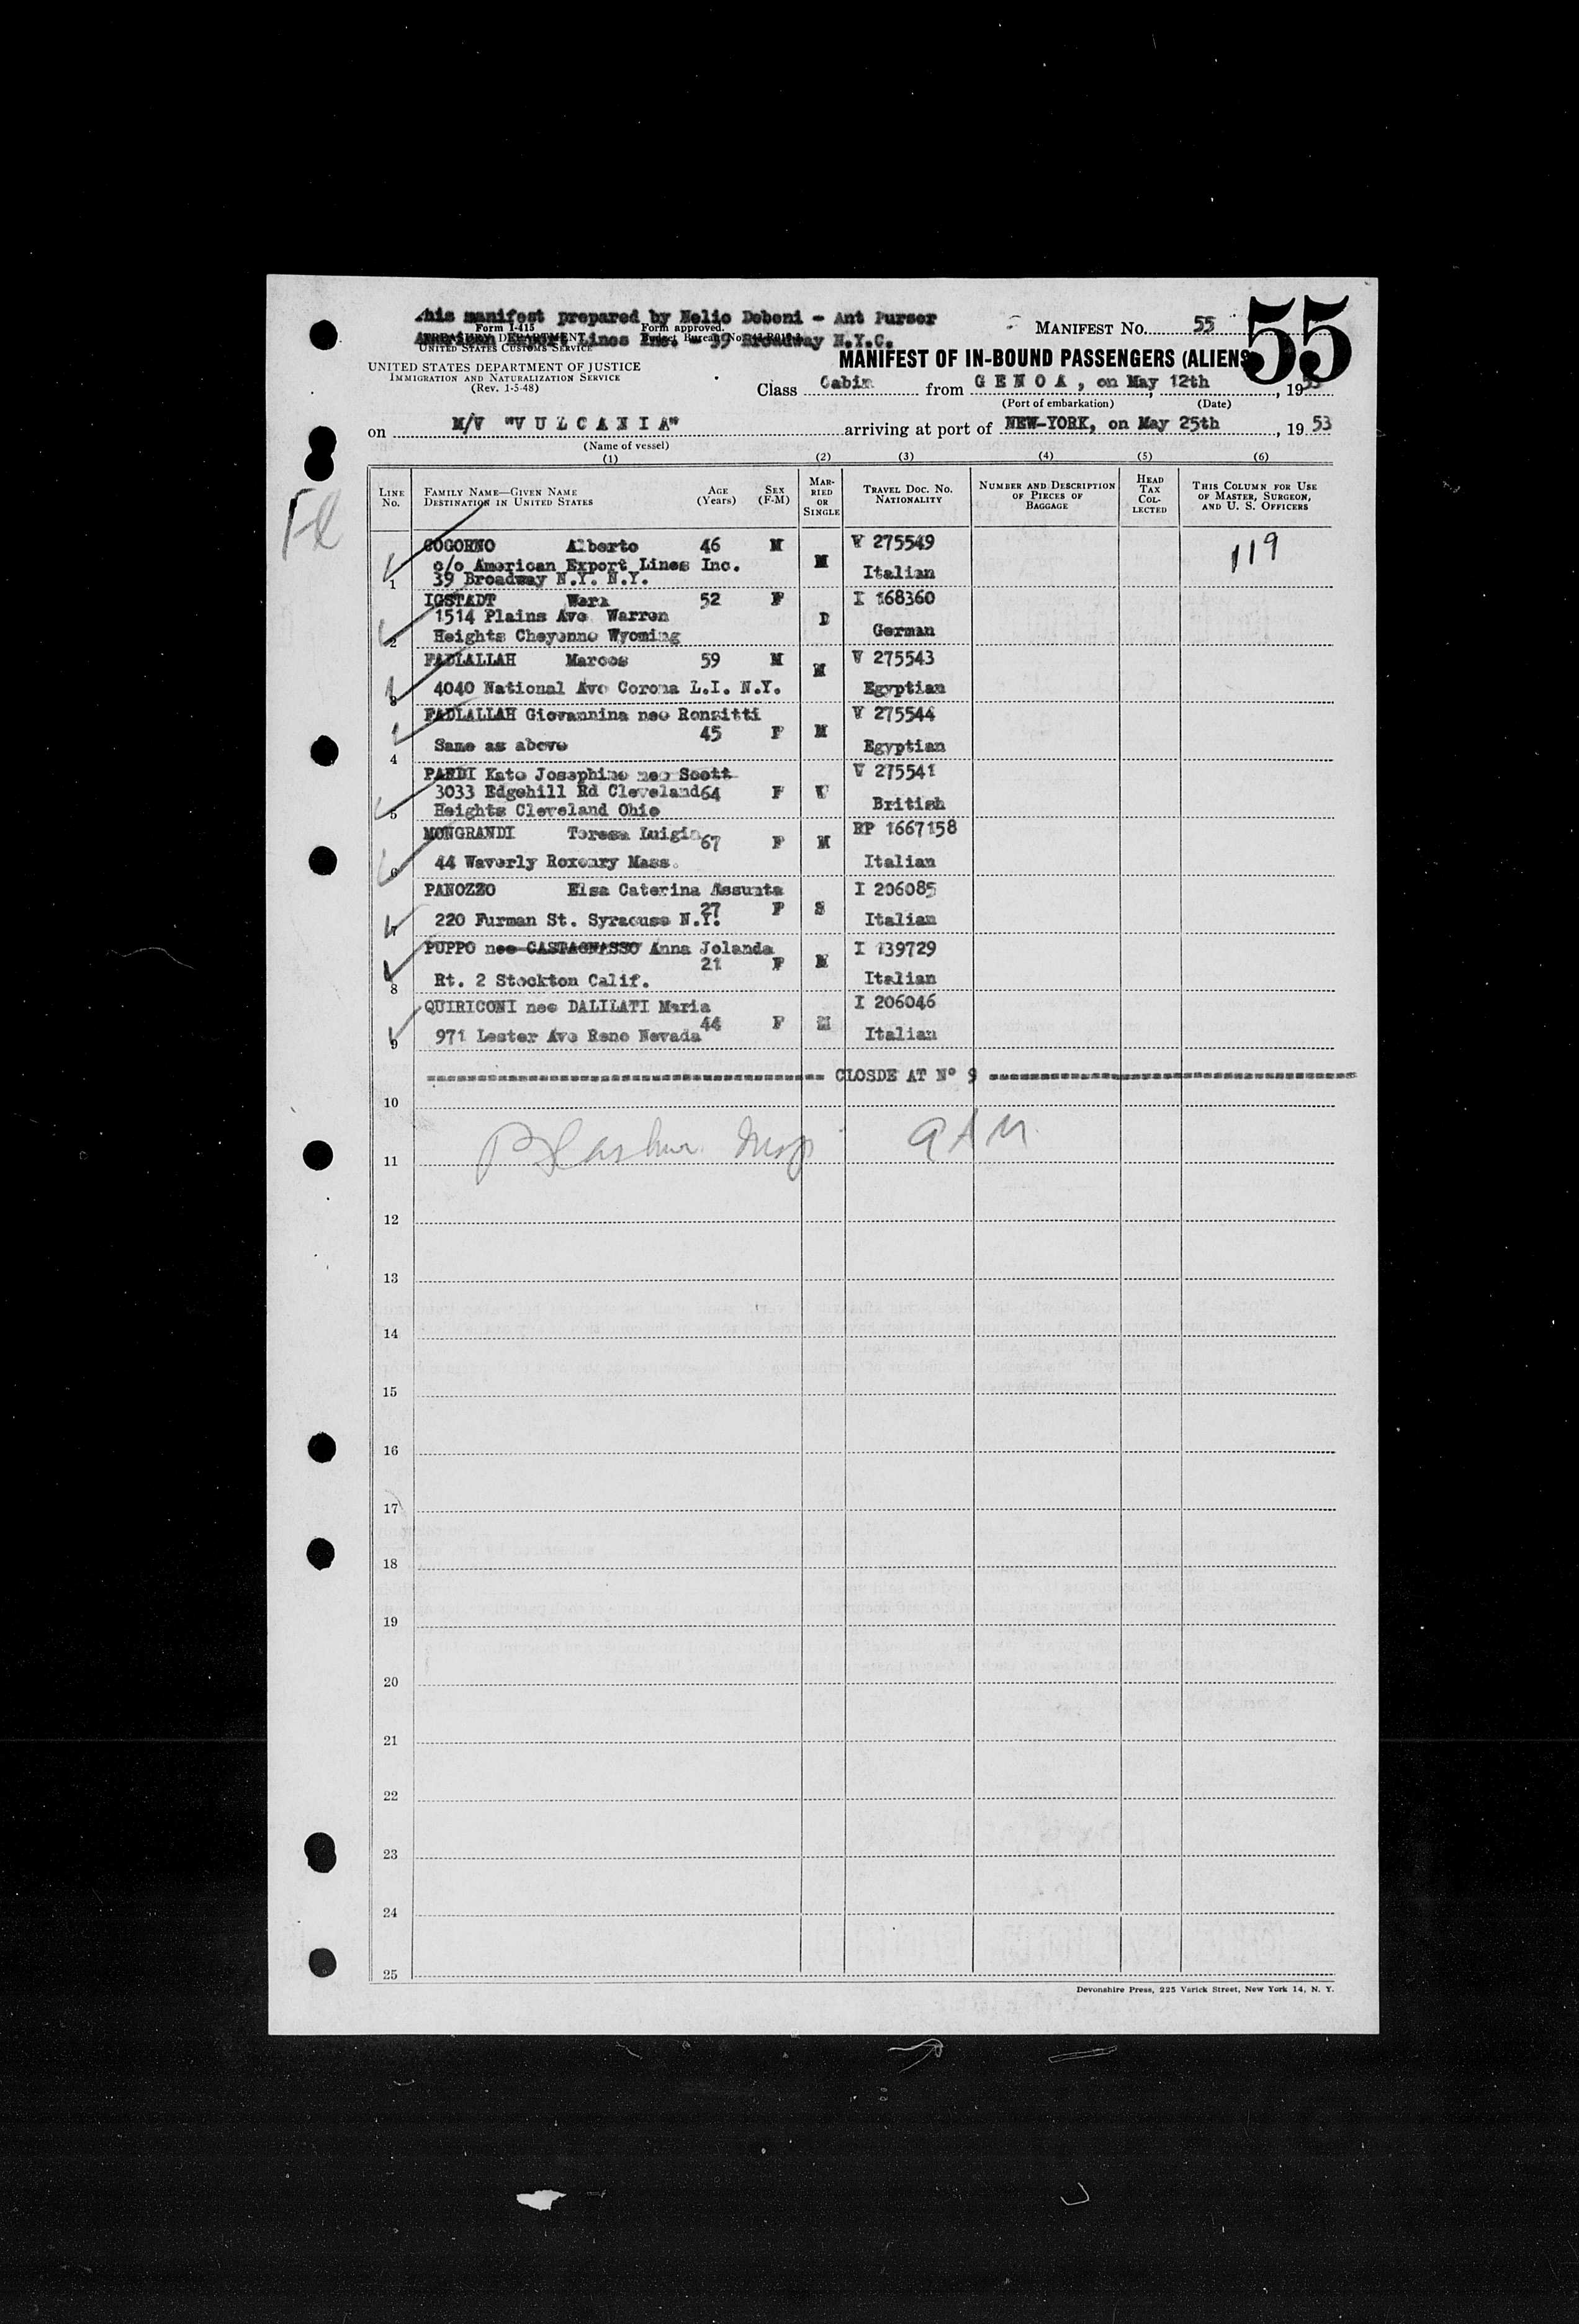 This manifest prepared by Nelio Deboni - Ant Purser
Form I-415
Form approved.
American Export Lines Inc. - 39 Broadway N.Y.C.
UNITED STATES CUSTOMS SERVICE
MANIFEST NO. 55
55
UNITED STATES DEPARTMENT OF JUSTICE
IMMIGRATION AND NATURALIZATION SERVICE
(Rev. 1-5-48)
MANIFEST OF IN-BOUND PASSENGERS (ALIENS
Class Cabin from G E N O A , on May 12th , 1953
(Port of embarkation) (Date)
on M/V "V U L C A N I A" arriving at port of NEW-YORK, on May 25th , 19 53
(Name of vessel)
(1) (2) (3) (4) (5) (6)
LINE No. FAMILY NAME—GIVEN NAME DESTINATION IN UNITED STATES AGE (Years) SEX (F-M) MARRIED OR SINGLE TRAVEL DOC. NO. NATIONALITY NUMBER AND DESCRIPTION OF PIECES OF BAGGAGE HEAD TAX COLLECTED THIS COLUMN FOR USE OF MASTER, SURGEON, AND U. S. OFFICERS
COGORNO Alberto 46 M V 275549 119
c/o American Export Lines Inc. M Italian
1 39 Broadway N.Y. N.Y.
IGSTADT Wera 52 F I 168360
1514 Plains Ave Warren D German
2 Heights Cheyenne Wyoming
FADLALLAH Marcos 59 M M V 275543
3 4040 National Ave Corona L.I. N.Y. Egyptian
FADLALLAH Giovannina nee Ronsitti V 275544
45 F M
4 Same as above Egyptian
PANDI Kate Josephine nee Scott V 275541
3033 Edgehill Rd Cleveland 64 F W British
5 Heights Cleveland Ohio
MONGRANDI Teresa Luigia 67 F M RP 1667158
6 44 Waverly Roxoury Mass. Italian
PANOZZO Elsa Caterina Assunta I 206085
27 F S
7 220 Furman St. Syracuse N.Y. Italian
PUPPO nee CASTAGNASSO Anna Jolanda I 139729
21 F M
8 Rt. 2 Stockton Calif. Italian
QUIRICONI nee DALILATI Maria I 206046
44 F M
9 971 Lester Ave Reno Nevada Italian
CLOSDE AT N° 9
10
11
12
13
14
15
16
17
18
19
20
21
22
23
24
25
Devonshire Press, 225 Varick Street, New York 14, N. Y.